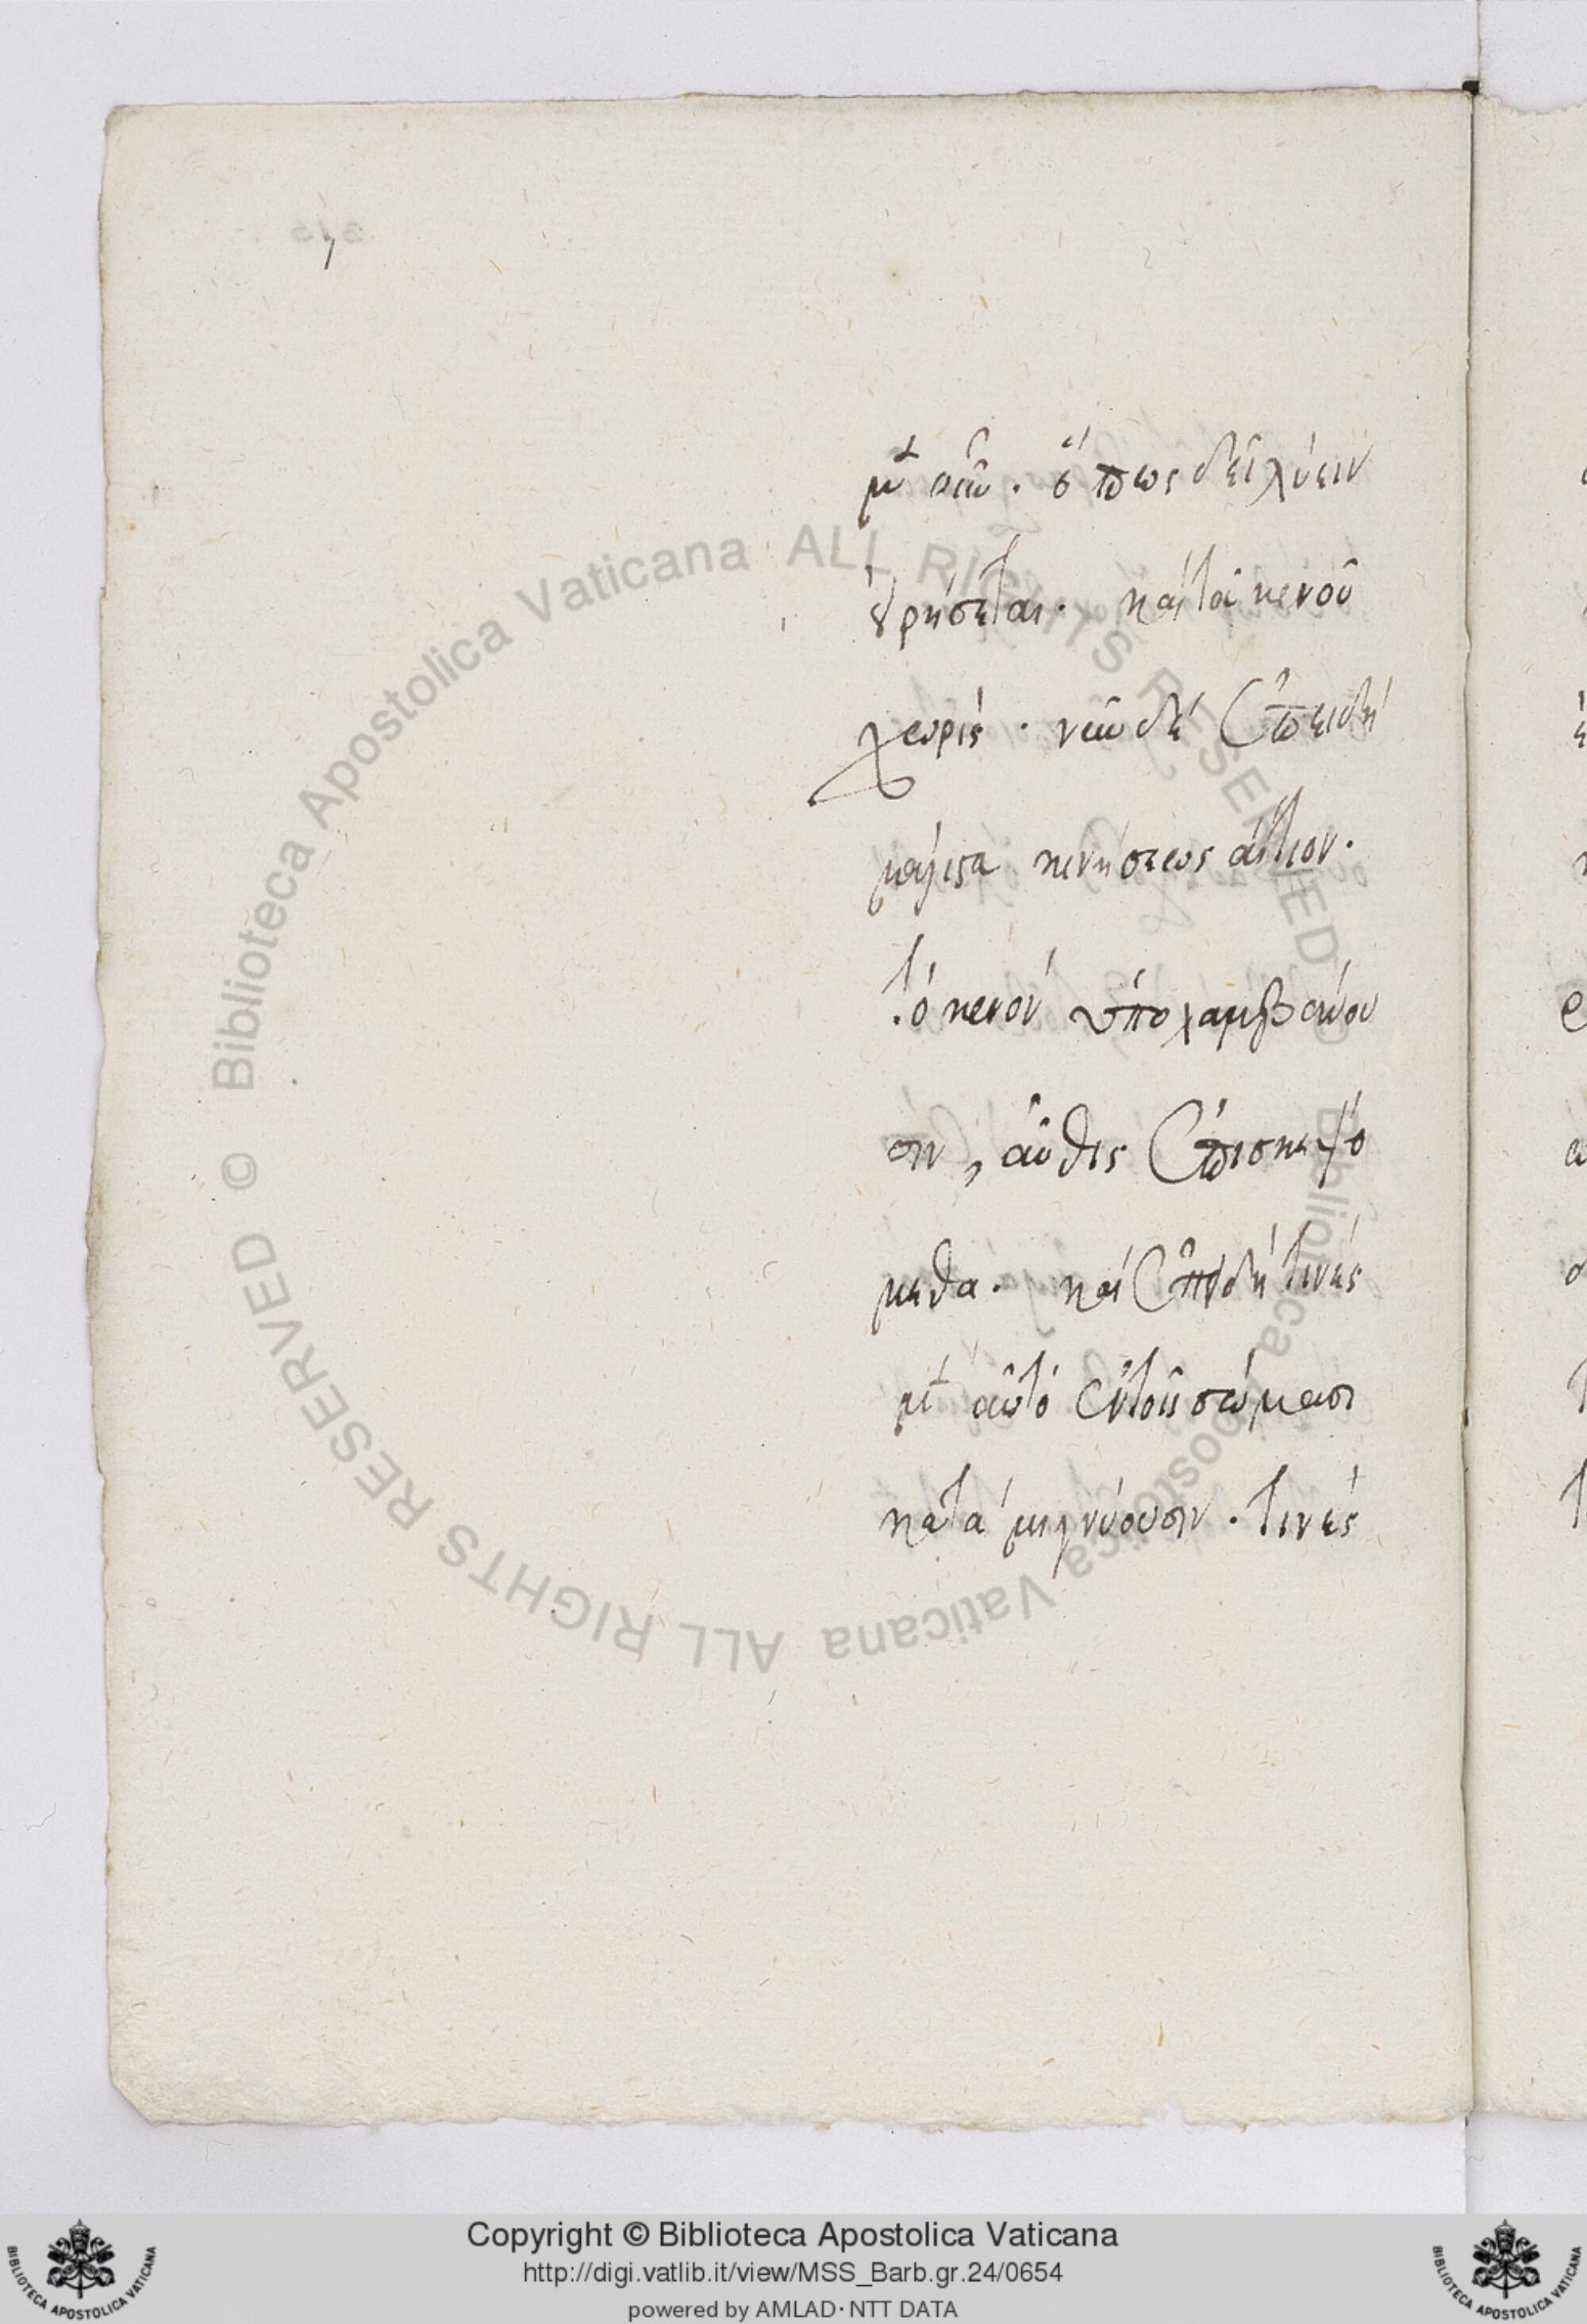 μὲν οὖν. ὅπως δεῖ λύειν
εὑρήσεται. καὶ τὰ κενοῦ
χωρίς. νῦν δὲ ἐπειδὴ
μάλιστα κινήσεως αἴτιον.
τὸ κενὸν ὑπολαμβάνου
σιν, αὖθις ἐπισκεψό
μεθα. καὶ ἐπειδή τινές
μὲν αὐτὸ ἐν τοῖς σώμασι
καταμιγνύουσιν. τινές
© Biblioteca Apostolica Vaticana ALL RIGHTS RESERVED
© Biblioteca Apostolica Vaticana ALL RIGHTS RESERVED
Copyright © Biblioteca Apostolica Vaticana
http://digi.vatlib.it/view/MSS_Barb.gr.24/0654
powered by AMLAD · NTT DATA
BIBLIOTECA APOSTOLICA VATICANA
BIBLIOTECA APOSTOLICA VATICANA